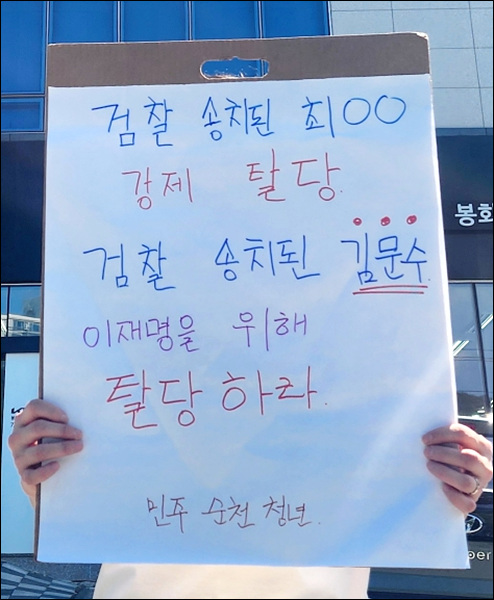 검찰 송치된 최OO
강제 탈당.
검찰 송치된 김문수.
이재명을 위해
탈당하라.
민주 순천 청년.
봉화